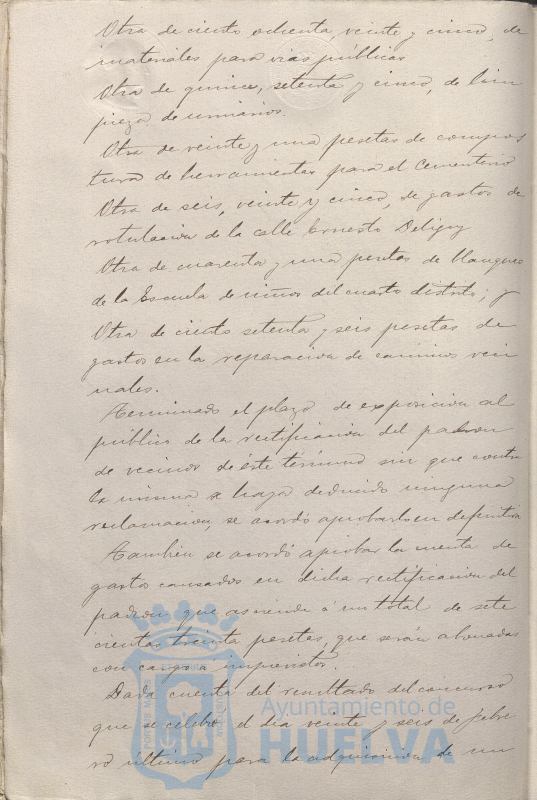 Otra de ciento ochenta, veinte y cinco, de
materiales para vias públicas
Otra de quince, setenta y cinco, de lim
pieza de urinarios.
Otra de veinte y una pesetas de compos
tura de herramientas para el Cementerio
Otra de seis, veinte y cinco, de gastos de
rotulacion de la calle Ernesto Deligny
Otra de cuarenta y una pesetas de blanqueo
de la Escuela de niños del cuarto distrito; y
Otra de ciento setenta y seis pesetas de
gastos en la reparacion de caminos veci
nales.
Terminado el plazo de exposicion al
público de la rectificacion del padron
de vecinos de éste término sin que contra
la misma se haya deducido ninguna
reclamacion, se acordó aprobarlo en definitiva
Tambien se acordó aprobar la cuenta de
gastos causados en dicha rectificacion del
padron que asciende á un total de sete
cientas treinta pesetas, que serán abonadas
con cargo a imprevistos.
Dada cuenta del resultado del concurso
que se celebró el dia veinte y seis de febre
ro último para la adquisicion de un
Ayuntamiento de
HUELVA